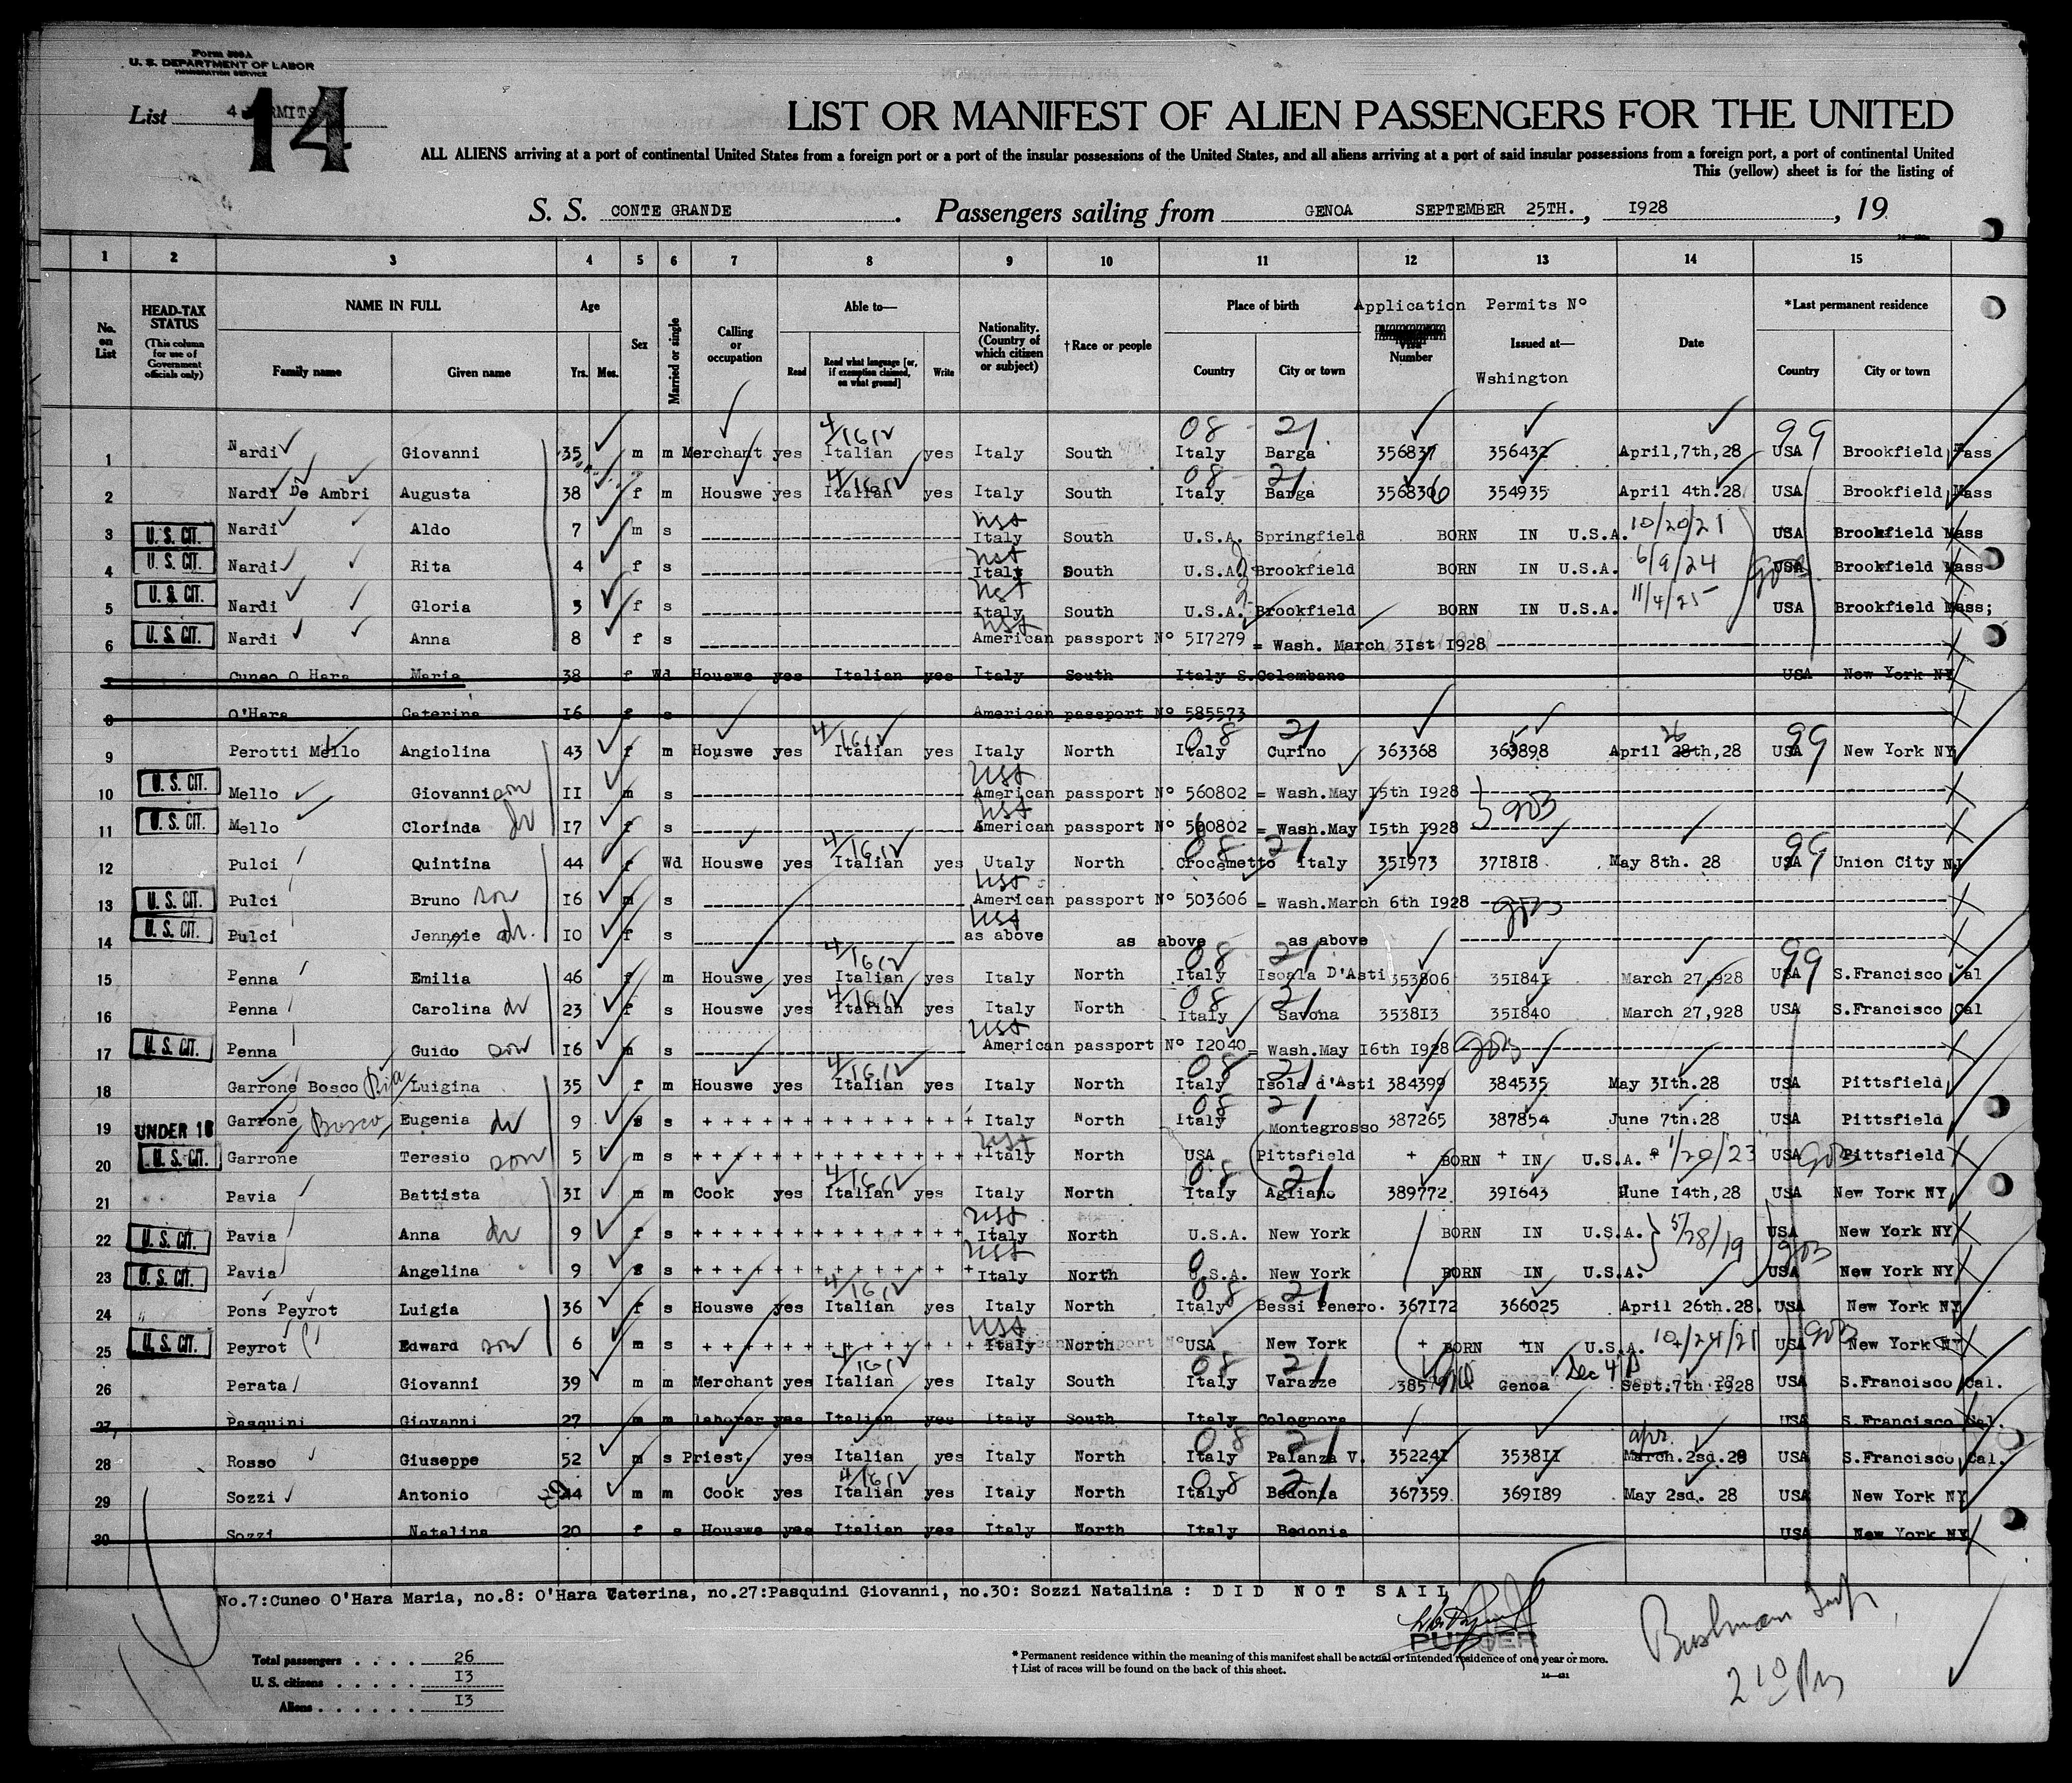 Form 500A
U. S. DEPARTMENT OF LABOR
IMMIGRATION SERVICE
List 4 PERMITS
14
LIST OR MANIFEST OF ALIEN PASSENGERS FOR THE UNITED
ALL ALIENS arriving at a port of continental United States from a foreign port or a port of the insular possessions of the United States, and all aliens arriving at a port of said insular possessions from a foreign port, a port of continental United
This (yellow) sheet is for the listing of
S. S. CONTE GRANDE . Passengers sailing from GENOA SEPTEMBER 25TH. , 1928 , 19
1 2 3 4 5 6 7 8 9 10 11 12 13 14 15
No. on List HEAD-TAX STATUS (This column for use of Government officials only) NAME IN FULL Family name Given name Age Yrs. Mos. Sex Married or single Calling or occupation Able to— Read Read what language [or, if exemption claimed, on what ground] Write Nationality. (Country of which citizen or subject) †Race or people Place of birth Country City or town Application Visa Number Permits Nº Issued at— Wshington Date *Last permanent residence Country City or town
1 Nardi Giovanni 35 m m Merchant yes 4/16 IV Italian yes Italy South 08 Italy 21 Barga 356837 356432 April,7th,28 99 USA Brookfield Mass
2 Nardi De Ambri Augusta 38 f m Houswe yes 4/16 IV Italian yes Italy South 08 Italy 21 Barga 356830 354935 April 4th.28 USA Brookfield Mass
3 U. S. CIT. Nardi Aldo 7 m s USA Italy South U.S.A. Springfield BORN IN U.S.A. 10/20/21 USA Brookfield Mass
4 U. S. CIT. Nardi Rita 4 f s USA Italy South U.S.A. Brookfield BORN IN U.S.A. 6/9/24 USA Brookfield Mass
5 U. S. CIT. Nardi Gloria 3 f s USA Italy South U.S.A. Brookfield BORN IN U.S.A. 11/4/25 USA Brookfield Mass;
6 U. S. CIT. Nardi Anna 8 f s USA American passport Nº 517279 = Wash. March 31st 1928
7 Cuneo O Hara Maria 38 f Wd Houswe yes Italian yes Italy South Italy S.Colombano USA New York NY
8 O'Hara Caterina 16 f s American passport Nº 585573
9 Perotti Mello Angiolina 43 f m Houswe yes 4/16 IV Italian yes Italy North 08 Italy 21 Curino 363368 363898 April 28th,28 26 99 USA New York NY
10 U. S. CIT. Mello Giovanni son 11 m s USA American passport Nº 560802 = Wash.May 15th 1928
11 U. S. CIT. Mello Clorinda 17 f s USA American passport Nº 560802 = Wash.May 15th 1928
12 Pulci Quintina 44 f Wd Houswe yes 4/16 IV Italian yes Utaly North 08 Crocemetto 21 Italy 351973 371818 May 8th. 28 99 USA Union City NJ
13 U. S. CIT. Pulci Bruno son 16 m s USA American passport Nº 503606 = Wash.March 6th 1928
14 U. S. CIT. Pulci Jennie 10 f s USA as above as above as above
15 Penna Emilia 46 f m Houswe yes 4/16 IV Italian yes Italy North 08 Italy 21 Isoala D'Asti 353806 351841 March 27,928 99 USA S.Francisco Cal
16 Penna Carolina 23 f s Houswe yes 4/16 IV Italian yes Italy North 08 Italy 21 Savona 353813 351840 March 27,928 USA S.Francisco Cal
17 U. S. CIT. Penna Guido son 16 m s USA American passport Nº 12040 = Wash.May 16th 1928
18 Garrone Bosco Rita Luigina 35 f m Houswe yes 4/16 IV Italian yes Italy North 08 Italy 21 Isola d'Asti 384399 384535 May 31th.28 USA Pittsfield
19 UNDER 16 Garrone Bosco Eugenia 9 s s + + + + + + + + + + + + + Italy North 08 Italy 21 Montegrosso 387265 387854 June 7th.28 USA Pittsfield
20 U. S. CIT. Garrone Teresio son 5 m s + + + + + + + + + + + + + USA Italy North USA Pittsfield + BORN + IN U.S.A. 1/20/23 USA Pittsfield
21 Pavia Battista 31 m m Cook yes 4/16 IV Italian yes Italy North 08 Italy 21 Agliano 389772 391643 June 14th,28 USA New York NY
22 U. S. CIT. Pavia Anna 9 f s + + + + + + + + + + + + + USA Italy North U.S.A. New York BORN IN U.S.A. 5/28/19 USA New York NY
23 U. S. CIT. Pavia Angelina 9 s s + + + + + + + + + + + + + USA Italy North U.S.A. New York BORN IN U.S.A. USA New York NY
24 Pons Peyrot Luigia 36 f s Houswe yes 4/16 IV Italian yes Italy North 08 Italy 21 Bessi Penero. 367172 366025 April 26th.28. USA New York NY
25 U. S. CIT. Peyrot Edward son 6 m s + + + + + + + + + + + + + USA Italy North USA New York + BORN + IN U.S.A. 10/24/21 USA New York NY
26 Perata Giovanni 39 m m Merchant yes 4/16 IV Italian yes Italy South 08 Italy 21 Varazze Genoa Dec 4 Sept.7th 1928 USA S.Francisco Cal.
27, Pasquini Giovanni 27 m m laborer yes Italian yes Italy South Italy Colognora USA S.Francisco Cal.
28 Rosso Giuseppe 52 m s Priest. yes Italian yes Italy North 08 Italy 21 Palanza V. 352241 353811 apr. March.2sd.28 USA S.Francisco Cal.
29 Sozzi Antonio 44 m m Cook yes 4/16 IV Italian yes Italy North 08 Italy 21 Bedonia 367359 369189 May 2sd. 28 USA New York NY
30 Sozzi Natalina 20 f s Houswe yes Italian yes Italy North Italy Bedonia USA New York NY
No.7:Cuneo O'Hara Maria, no.8: O'Hara Caterina, no.27:Pasquini Giovanni, no.30: Sozzi Natalina : DID NOT SAIL
PURSER
Total passengers . . . . 26
U. S. citizens . . . . . 13
Aliens . . . . . . 13
* Permanent residence within the meaning of this manifest shall be actual or intended residence of one year or more.
† List of races will be found on the back of this sheet.
14—421